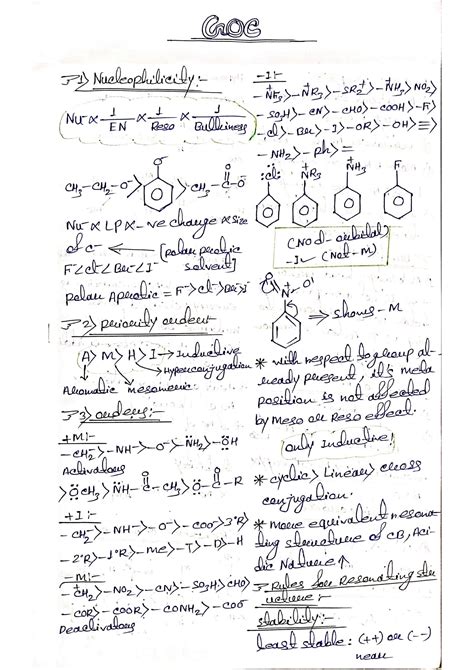 GOC
1) Nucleophilicity:-
Nu⁻ ∝ 1/EN ∝ 1/Reso ∝ 1/Bulkiness
CH₃-CH₂-O⁻ > O⁻ > CH₃-C-O⁻
O
Nu⁻ ∝ LP ∝ -ve charge ∝ size
of c⁻ ← [Polar protic
F⁻<Cl⁻<Br⁻<I⁻ solvent]
Polar Aprotic = F⁻>Cl⁻>Br⁻>I⁻
2) Priority order
A > M > H > I → Inductive
Hyperconjugation
Aromatic mesomeric
3) orders:-
+M:-
-CH₂⁻>-NH⁻>-O⁻>-NH₂>-OH
Activators
>OCH₃>NH-C-CH₃>O-C-R
O O
+I:-
-CH₂⁻>-NH⁻>-O⁻>-COO⁻>3°R>
-2°R>-1°R>-Me>-T>-D>-H
-M:-
-CH₂⁺>-NO₂>-CN>-SO₃H>CHO>
-COR>-COOR>-CONH₂>-COO⁻
Deactivators
-I:-
-NF₃⁺>-NR₃⁺>-SR₂⁺>-NH₃⁺>NO₂>
-SO₃H>-CN>-CHO>-COOH>-F>
-Cl>-Br>-I>-OR>-OH>≡>
-NH₂>-Ph>=
:Cl: NR₃⁺ NH₃⁺ F
(No d-orbital)
-I (Not-M)
O N⁺ O⁻
⇒ shows -M
* with respect to group al-
ready present, it's meta
position is not affected
by Meso or Reso effect.
only Inductive!
* cyclic > Linear > cross
conjugation.
* more equivalent resona-
ting structure of CB, Aci-
dic Nature ↑
Rules for Resonating str-
ucture:
stability:-
Least stable: (++) or (--)
near